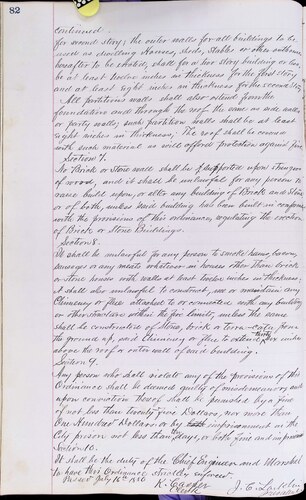 82
continued
for second story; the outer walls for all buildings to be
used as dwelling Houses, sheds, Stables or other outhouses
hereafter to be erected, shall for a two story building or less,
be at least twelve inches in thickness for the first story,
and at least eight inches in thickness for the second story
All partitions walls shall also extend from the
foundation and through the roof the same as side walls
or party walls; such partition walls shall be at least
eight inches in thickness; The roof shall be covered
with such material as will afford protection against fire.
Section 7.
No Brick or Stone wall shall be supported upon stringers
of wood, and it shall be unlawful for any person to
raise build upon, or alter any building of Brick and Stone
or of both, unless said building has been built in conformity
with the provisions of this ordinance, regulating the erection
of Brick or Stone Buildings.
Section 8.
It shall be unlawful for any person to smoke hams, bacon,
sausages or any meats whatever in houses other than brick
or stone houses with walls at least twelve inches in thickness.
It shall also unlawful to construct, use or maintain any
Chimney or flue attached to or connected with any building
or other structure within the fire limits, unless the same
shall be constructed of Stone, brick or Terra-Cotta, from
the ground up, said Chimney or flue to extend thirty six inches
above the roof or outer wall of said building.
Section 9.
Any person who shall violate any of the provisions of this
Ordinance shall be deemed guilty of misdemeanor and
upon conviction thereof shall be punished by a fine
of not less than twenty five Dollars, nor more than
One Hundred Dollars or by imprisonment in the
City prison not less than days, or both fine and imprisonment
Section 10.
It shall be the duty of the Chief Engineer and Marshal
to have this Ordinance strictly enforced.
Passed July 16th 1880
K. Casper
Clerk